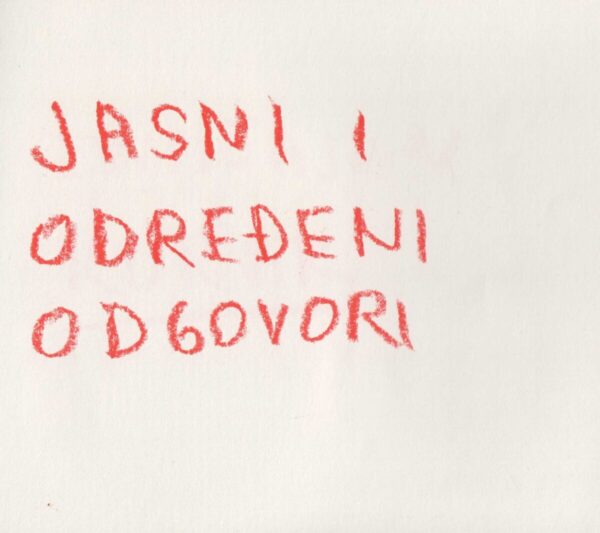 JASNI I
ODREĐENI
ODGOVORI